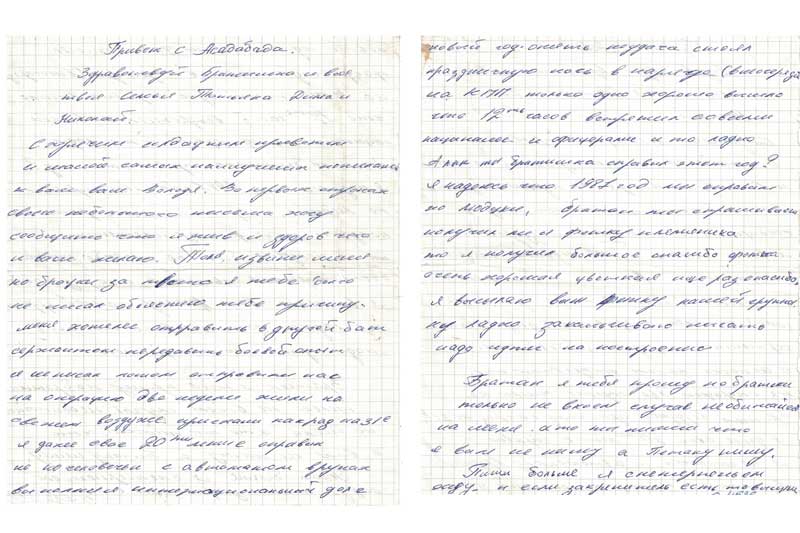 Привет с Асадабада.
Здравствуй Братишка и вся
твоя семья Татьяна Дима и
Николай.
С горячим и воздушным приветом
и массой самых наилучших пожеланий
к вам ваш Володя. Во первых строках
своего небольшого письма хочу
сообщить что я жив и здоров чего
и вам желаю. Толь, извини меня
по братски за то что я тебе долго
не писал объясняю тебе причину.
меня хотели отправить в другой бат
сержантом передавать боевой опыт
я не писал потом отправили нас
на операцию две недели жили на
свежем воздухе приехали как раз на 31е
я даже свое 20ти летие справил
не по человечи с автоматом в руках
выполняя интернациональный долг
новый год опять неудача стоял
праздничную ночь в наряде
на КПП только одно хорошо вышло
что 12ть часов встретил со своими
пацанами и офицерами и то ладно
А как ты братишка справил этот год?
я надеюсь что 1987 год мы справим
по людски, братан ты спрашиваешь
получил ли я фотку племяника
то я получил большое спасибо фотка
очень хорошая цветная еще раз спасибо,
я высылаю вам фотку нашей группы
ну ладно заканчиваю писать
надо идти на построение
Братан я тебя прошу по братски
только не в коем случае не обижайся
на меня. а то ты писал что
я вам не пишу а Петьку пишу.
Пиши больше я с нетерпеньем
жду. и если закрепитель есть то вышли